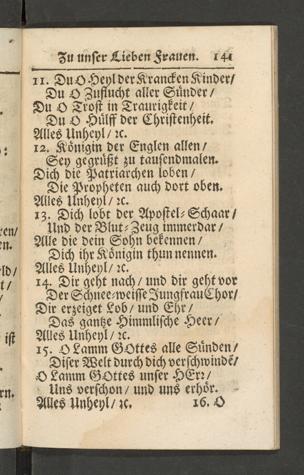 Zu unser Lieben Frauen. 141
11. Du O Heyl der Krancken Kinder/
Du O Zuflucht aller Sünder/
Du O Trost in Traurigkeit/
Du O Hülff der Christenheit.
Alles Unheyl/ ꝛc.
12. Königin der Englen allen/
Sey gegrüßt zu tausendmalen.
Dich die Patriarchen loben/
Die Propheten auch dort oben.
Alles Unheyl/ ꝛc.
13. Dich lobt der Apostel-Schaar/
Und der Blut-Zeug immerdar/
Alle die dein Sohn bekennen/
Dich ihr Königin thun nennen.
Alles Unheyl/ ꝛc.
14. Dir geht nach/ und dir geht vor
Der Schnee-weisse Jungfrau Chor/
Dir erzeiget Lob/ und Ehr/
Das gantze Himmlische Heer/
Alles Unheyl/ ꝛc.
15. O Lamm GOttes alle Sünden/
Diser Welt durch dich verschwindē/
O Lamm GOttes unser HErꝛ/
Uns verschon/ und uns erhör.
Alles Unheyl/ ꝛc. 16. O